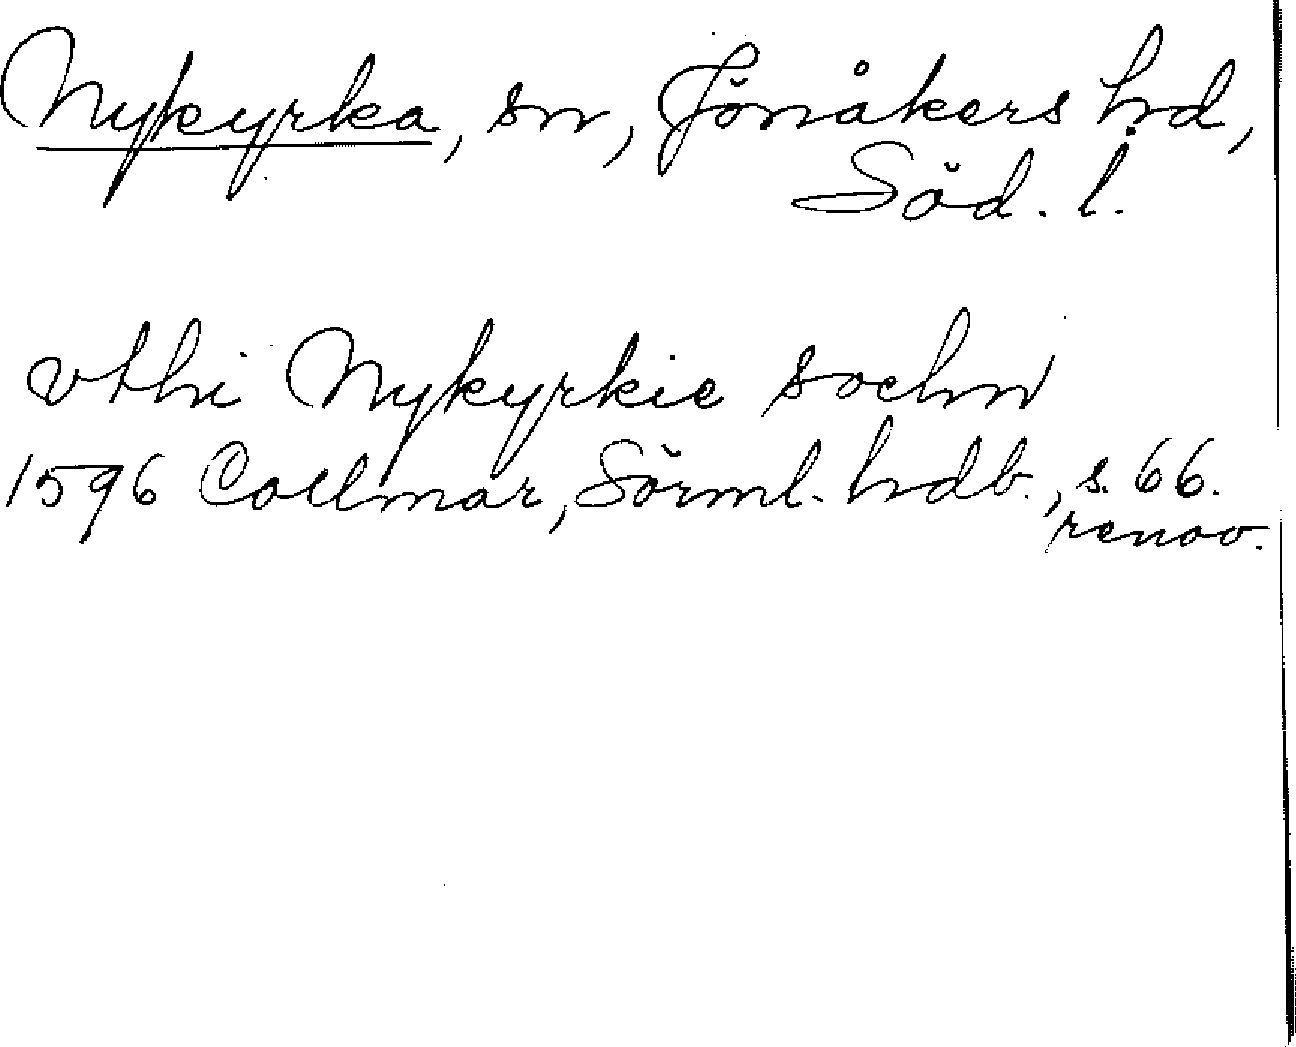 Nykyrka, sn, Jönåkers hd,
Söd. l.
vthi Nykyrkie sochn
1596 Collmar, Sörml. hdb., s. 66.
renov.